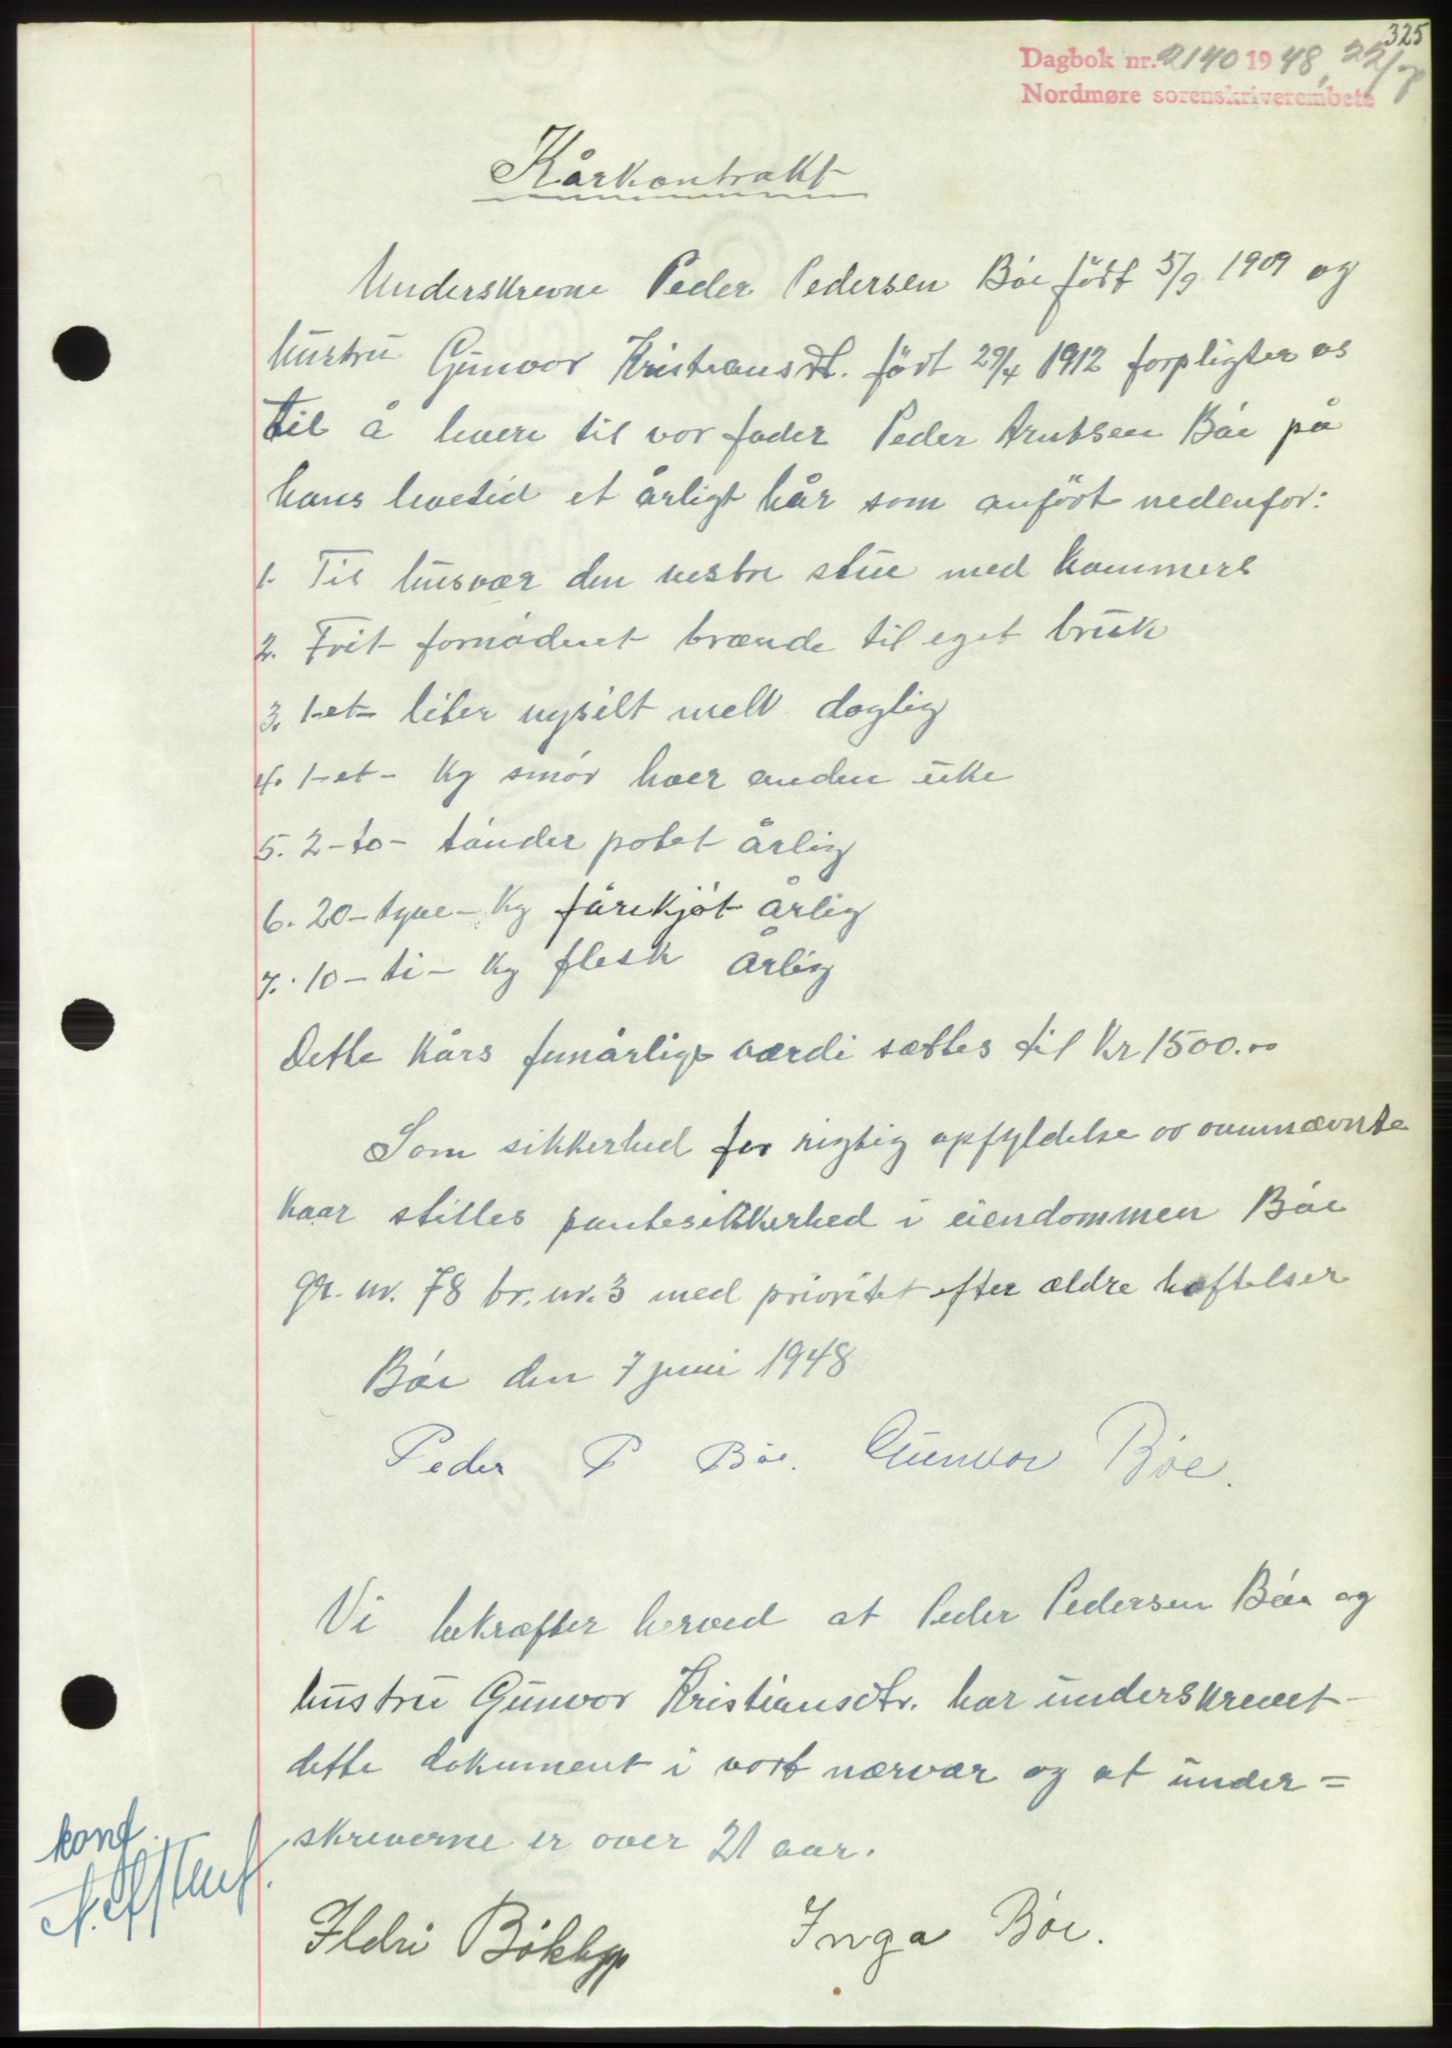 325
Dagbok nr. 2140 1948, 22/7
Nordmøre sorenskriverembete
Kårkontrakt
Underskrevne Peder Pedersen Bøe født 5/9 1909 og
hustru Gunvor Kristiansdt. født 29/4 1912 forpligter os
til å levere til vor fader Peder Arntsen Bøe på
hans levetid et årligt kår som anført nedenfor:
1. Til husvær den vestre stue med kammers
2. Frit fornødent brænde til eget bruk
3. 1-et- liter nysilt melk daglig
4. 1-et- kg smør hver anden uke
5. 2-to- tønder potet årlig
6. 20-tyve- kg fårekjøt årlig
7. 10-ti- kg flesk årlig
Dette kårs femårlige værdi sættes til Kr 1500.00
Som sikkerhed for rigtig opfyldelse av ovennævnte
kaar stilles pantesikkerhed i eiendommen Bøe
gr. nr. 78 br. nr. 3 med prioritet efter ældre heftelser
Bøe den 7 juni 1948
Peder P Bøe. Gunvor Bøe.
Vi bekræfter herved at Peder Pedersen Bøe og
hustru Gunvor Kristiansdtr. har underskrevet
dette dokument i vort nærvær og at under=
skriverne er over 21 aar.
konf.
Ildri Bøklepp Inga Bøe.